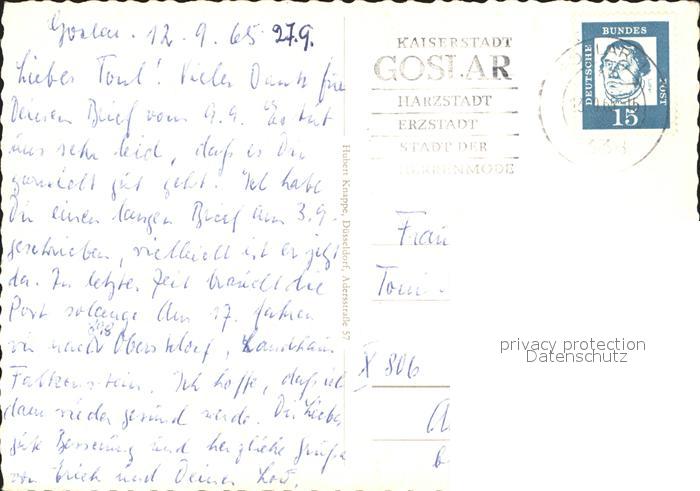 Goslar. 12.9.65 27.9.
Liebes Toni! Vielen Dank für
Deinen Brief vom 9.9. Es tut
uns sehr leid, daß es Dir
garnicht gut geht. Ich habe
Dir einen langen Brief am 3.9.
geschrieben, vielleicht ist er jetzt
da. In letzter Zeit braucht die
Post solange. Am 17. fahren
wir nach Oberstdorf, Landhaus
Falkenstein. Ich hoffe, daß ich
dann wieder gesund werde. Dir Liebes
gute Besserung und herzliche Grüße
von Erich und Deiner
Hubert Knappe, Düsseldorf, Adersstraße 57
KAISERSTADT
GOSLAR
HARZSTADT
ERZSTADT
STADT DER
HERRENMODE
DEUTSCHE BUNDESPOST
15
Frau
Toni
X 806
privacy protection
Datenschutz